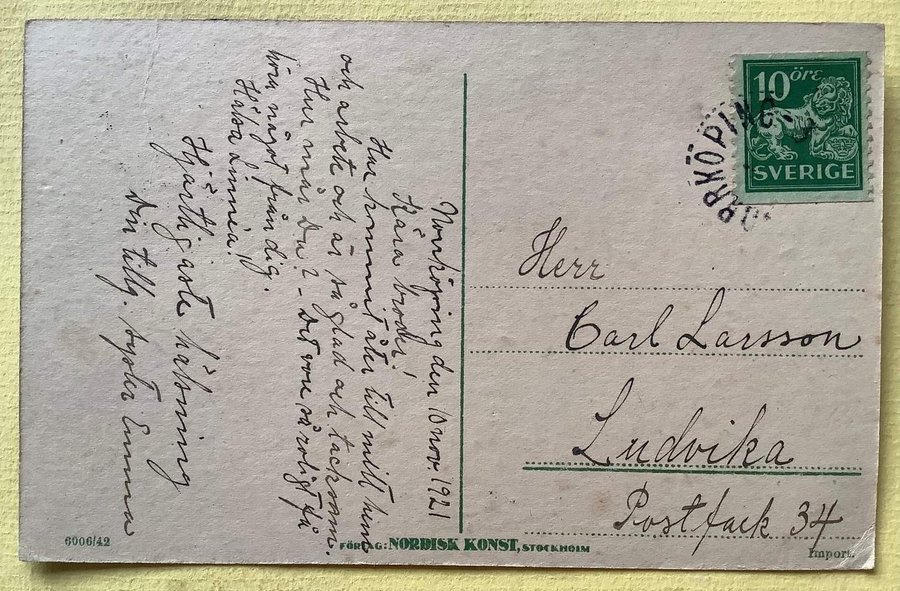 Norrköping den 10 nov. 1921
Kära broder!
Har kommit åter till mitt hem
och arbete och är så glad och tacksam.
Hur mår Du? - Det vore så roligt få
höra något från dig.
Hälsa Linnea!
Hjärtligaste hälsning
Din tillg. syster Emma
10 öre
SVERIGE
NORRKÖPING
Herr
Carl Larsson
Ludvika
Postfack 34
6006/42
FÖRLAG: NORDISK KONST, STOCKHOLM
Import.